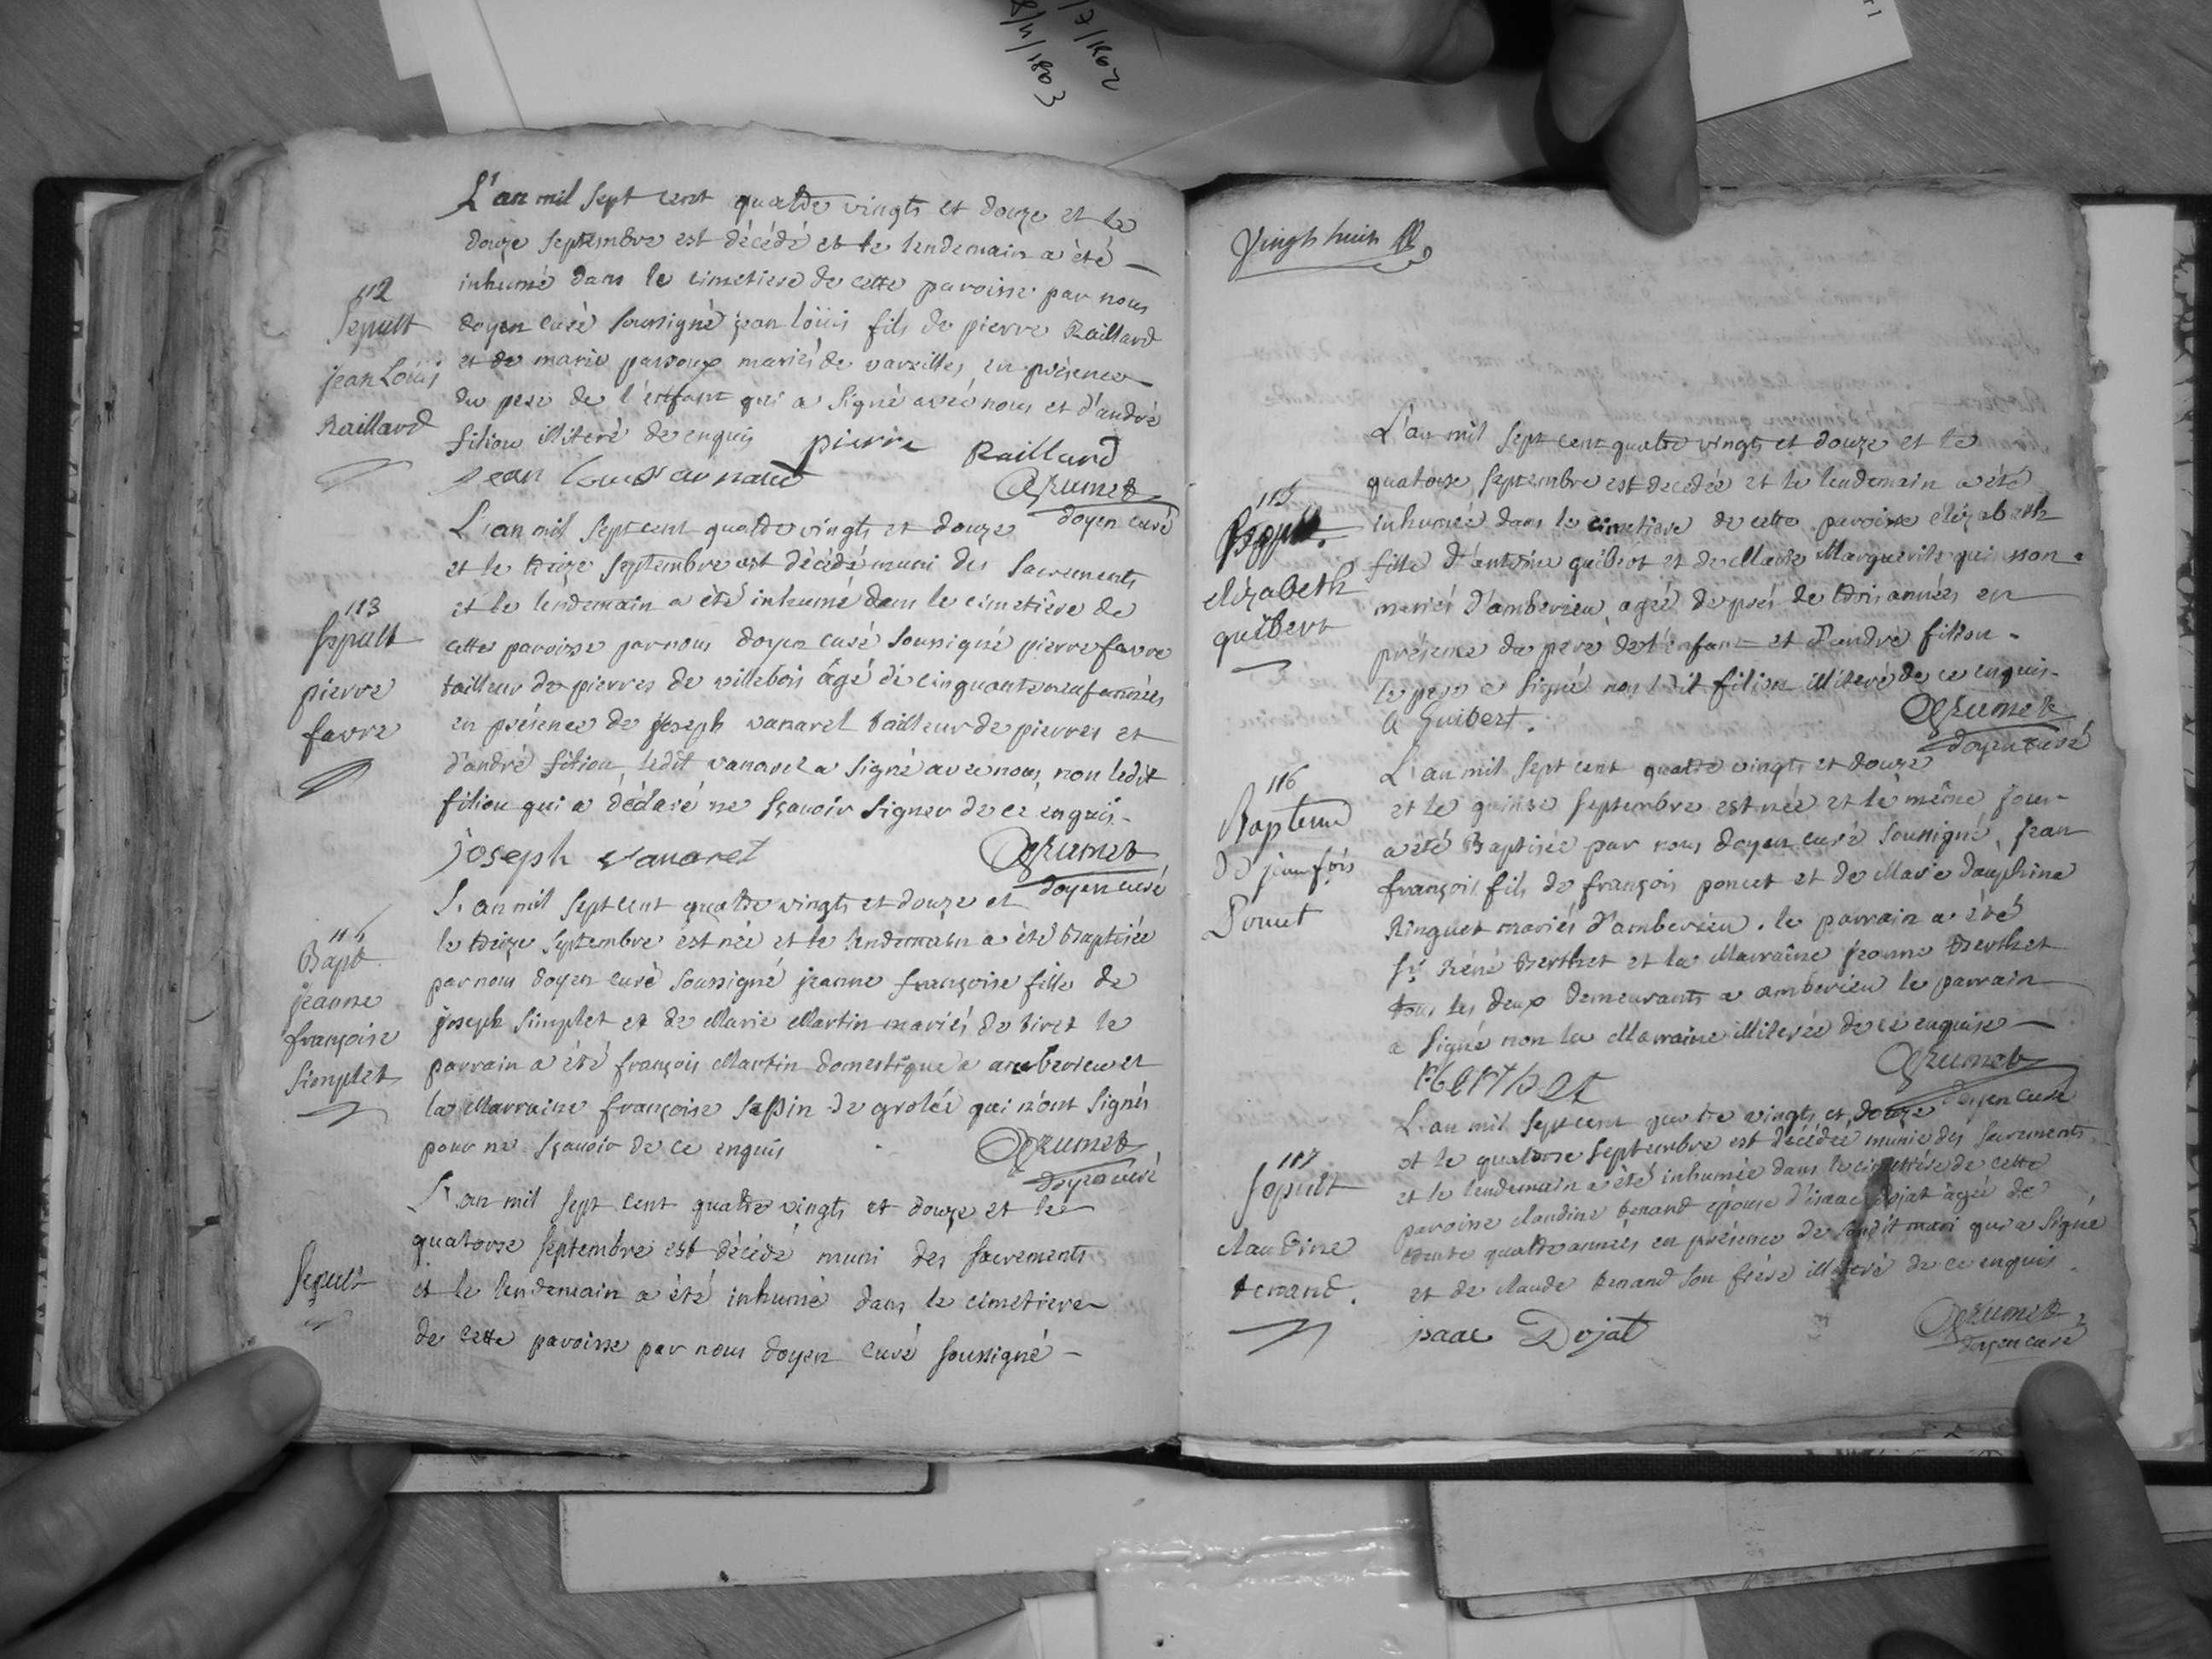 7/1802
8/4/1803
L'an mil sept cent quatre vingts et douze et le
douze septembre est décédé et le lendemain a été
inhumé dans le cimetiere de cette paroisse par nous
doyen curé soussigné jean loüis fils de pierre Raillard
et de marie passoux mariés de vareilles, en présence
du pere de l'enfant qui a signé avec nous et d'andré
filion illiteré de enquis
pierre Raillard
jean Louis
Grumet
doyen curé
112
Sepult
jean Loüis
Raillard
L'an mil sept cent quatre vingts et douze
et le treize septembre est décédé muni des sacrements
et le lendemain a été inhumé dans le cimetière de
cette paroisse par nous doyen curé soussigné pierre favre
tailleur de pierres de villebois âgé de cinquante neuf années
en présence de joseph vanarel tailleur de pierres et
d'andré filion, ledit vanarel a signé avec nous, non ledit
filion qui a déclaré ne sçavoir signer de ce enquis.
joseph vanaret
Grumet
doyen curé
113
Sepult
pierre
favre
L'an mil sept cent quatre vingts et douze et
le treize septembre est née et le lendemain a été Baptisée
par nous doyen curé soussigné jeanne françoise fille de
joseph simplet et de Marie Martin mariés de tiret le
parrain a été françois Martin domestique a amberieu et
la Marraine françoise sapin de grolée qui n'ont signés
pour ne sçavoir de ce enquis
Grumet
doyen curé
114
Bapt
jeanne
françoise
simplet
L'an mil sept cent quatre vingts et douze et le
quatorse septembre est décédé muni des sacrements
et le lendemain a été inhumé dans le cimetiere
de cette paroisse par nous doyen curé soussigné
Sepult
Vingt huit
L'an mil sept cent quatre vingts et douze et le
quatorse septembre est decedée et le lendemain a été
inhumée dans le cimetiere de cette paroisse elizabeth
fille d'antoine guibert et de Marie Marguerite gui non
mariés d'amberieu, agée de prés de trois années en
présence du pere de l'enfant et d'andré filion.
le pere a signé non ledit filion illiteré de ce enquis.
A Guibert.
Grumet
doyen curé
115
Sepult.
elizabeth
guibert
L'an mil sept cent quatre vingts et douze
et le quinse septembre est née et le même jour
a été Baptisée par nous doyen curé soussigné, jean
françois fils de françois poncet et de Marie dauphine
Ringuet mariés d'amberieu. le parrain a été
sr. Réné Berthet et la Marraine jeanne Berthet
tous les deux demeurants a amberieu le parrain
a signé non la Marraine illiterée de ce enquise
rberthet
Grumet
doyen curé
116
Bapteme
de jean fois
Poncet
L'an mil sept cent quatre vingts et douze
et le quatorse septembre est décédée munie des sacrements
et le lendemain a été inhumée dans le cimetiére de cette
paroisse claudine tenand épouse d'isaac dojat âgée de
trente quatre années en présence de sondit mari qui a signé
et de claude tenand son frére illiteré de ce enquis.
isaac Dojat
Grumet
doyen curé
117
Sepult
claudine
tenand.